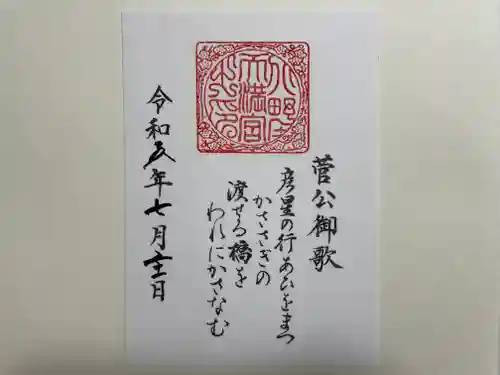 天満宮
菅公御歌
彦星の行あひをまつ
かささぎの
渡せる橋を
われにかさなむ
令和五年七月日